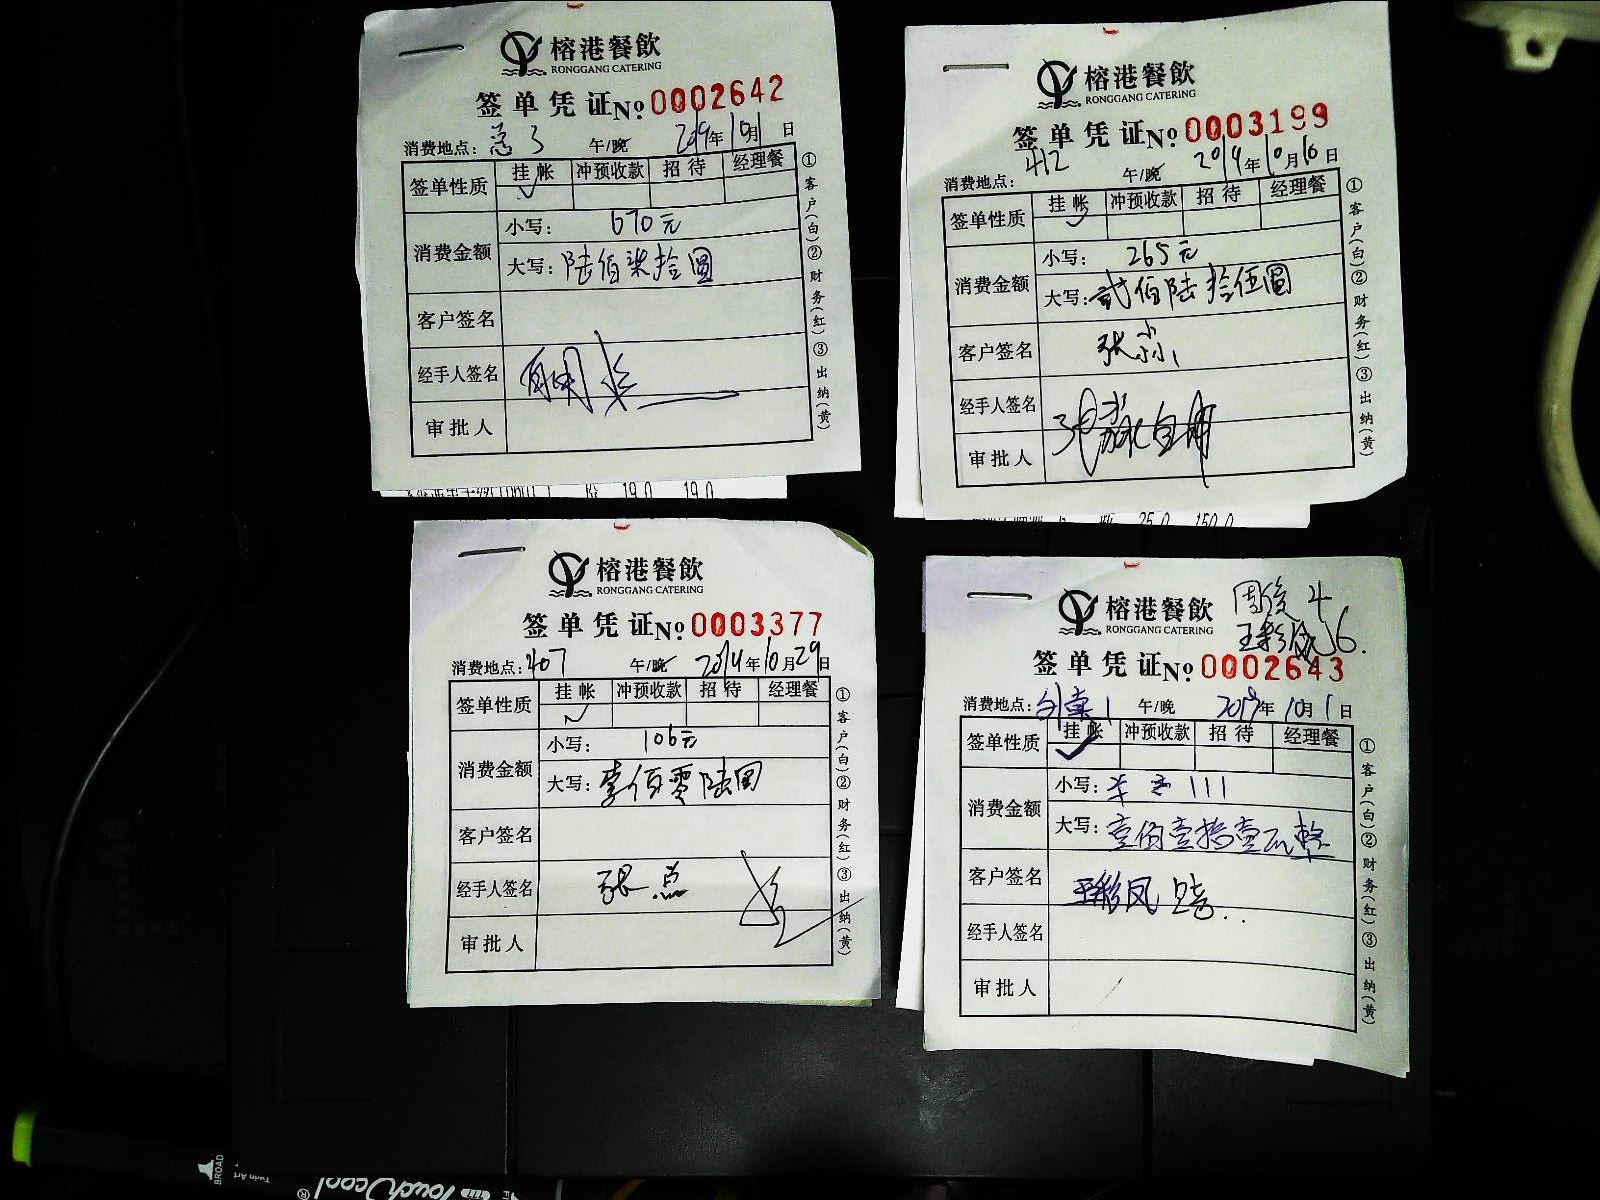 榕港餐飲
RONGGANG CATERING
签单凭证 No 0002642
消费地点: 午/晚 2019年10月1日
签单性质 挂帐 冲预收款 招待 经理餐
✓
消费金额 小写: 670元
大写: 陆佰柒拾圆
客户签名
经手人签名
审批人
①客户(白)②财务(红)③出纳(黄)
19.0 19.0
榕港餐飲
RONGGANG CATERING
签单凭证 No 0003199
消费地点: 412 午/晚 2019年10月16日
签单性质 挂帐 冲预收款 招待 经理餐
✓
消费金额 小写: 265元
大写: 贰佰陆拾伍圆
客户签名
经手人签名
审批人
①客户(白)②财务(红)③出纳(黄)
25.0 150.0
榕港餐飲
RONGGANG CATERING
签单凭证 No 0003377
消费地点: 407 午/晚 2019年10月29日
签单性质 挂帐 冲预收款 招待 经理餐
✓
消费金额 小写: 106元
大写: 壹佰零陆圆
客户签名
经手人签名
审批人
①客户(白)②财务(红)③出纳(黄)
榕港餐飲
RONGGANG CATERING
签单凭证 No 0002643
消费地点: 午/晚 2019年10月1日
签单性质 挂帐 冲预收款 招待 经理餐
✓
消费金额 小写: 111
大写: 壹佰壹拾壹元整
客户签名 王彩凤
经手人签名
审批人
①客户(白)②财务(红)③出纳(黄)
BROAD
Twin Art
Touch cool